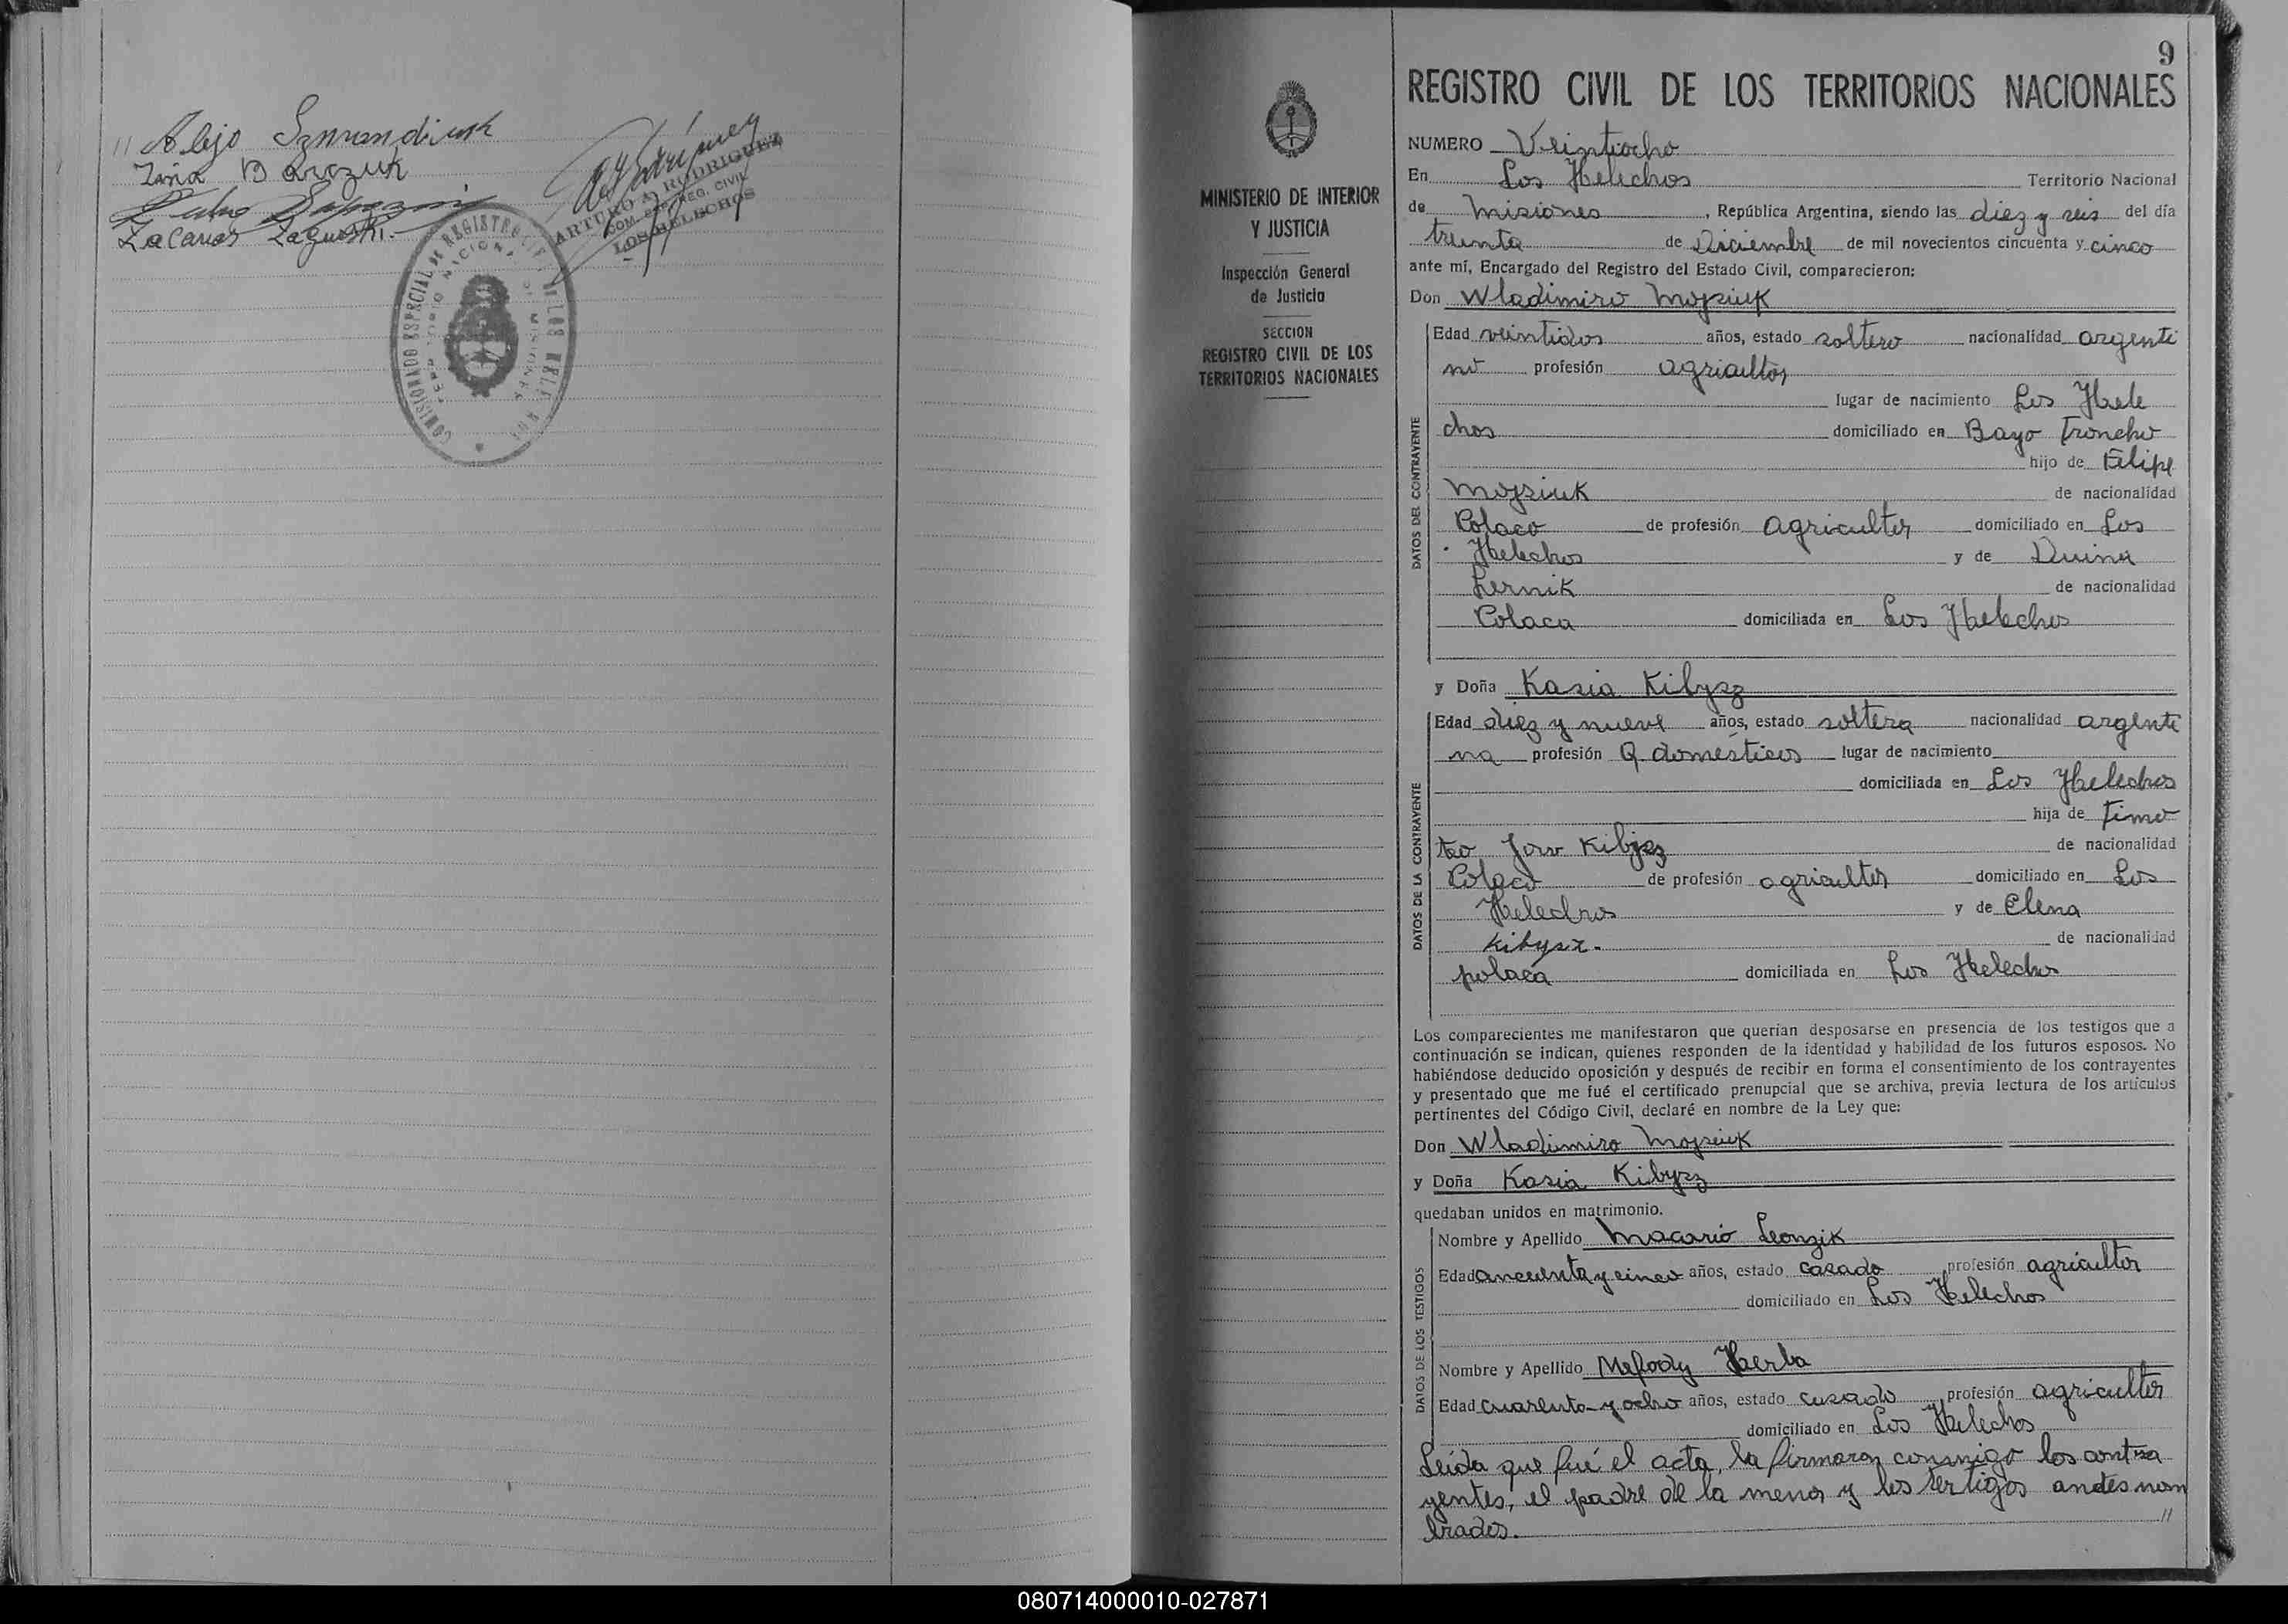 // Alejo Szmandiuk
Zina Barczuk
Zacarias Zagurski.
ARTURO A. RODRIGUEZ
COM. ESP. REG. CIVIL
LOS HELECHOS
COMISIONADO ESPECIAL DE REGISTRO CIVIL DE LOS HELECHOS
TERRITORIO NACIONAL DE MISIONES
9
REGISTRO CIVIL DE LOS TERRITORIOS NACIONALES
MINISTERIO DE INTERIOR
Y JUSTICIA
Inspección General
de Justicia
SECCION
REGISTRO CIVIL DE LOS
TERRITORIOS NACIONALES
NUMERO Veintiocho
En Los Helechos Territorio Nacional
de Misiones, República Argentina, siendo las diez y seis del día
treinta de Diciembre de mil novecientos cincuenta y cinco
ante mí, Encargado del Registro del Estado Civil, comparecieron:
Don Wladimiro Mojsiuk
DATOS DEL CONTRAYENTE
Edad veintidos años, estado soltero nacionalidad argenti
no profesión agricultor
lugar de nacimiento Los Hele
chos domiciliado en Bayo Troncho
hijo de Felipe
Mojsiuk de nacionalidad
Polaco de profesión agricultor domiciliado en Los
Helechos y de Duina
Lernik de nacionalidad
Polaca domiciliada en Los Helechos
y Doña Kasia Kibysz
DATOS DE LA CONTRAYENTE
Edad diez y nueve años, estado soltera nacionalidad argenti
na profesión Q. domésticos lugar de nacimiento
domiciliada en Los Helechos
hija de Timo
teo Kibysz de nacionalidad
Polaco de profesión agricultor domiciliado en Los
Helechos y de Elena
Kibysz. de nacionalidad
polaca domiciliada en Los Helechos
Los comparecientes me manifestaron que querían desposarse en presencia de los testigos que a
continuación se indican, quienes responden de la identidad y habilidad de los futuros esposos. No
habiéndose deducido oposición y después de recibir en forma el consentimiento de los contrayentes
y presentado que me fué el certificado prenupcial que se archiva, previa lectura de los artículos
pertinentes del Código Civil, declaré en nombre de la Ley que:
Don Wladimiro Mojsiuk
y Doña Kasia Kibysz
quedaban unidos en matrimonio.
DATOS DE LOS TESTIGOS
Nombre y Apellido Macario Leonzik
Edad cincuenta y cinco años, estado casado profesión agricultor
domiciliado en Los Helechos
Nombre y Apellido Mefody Herba
Edad cuarenta y ocho años, estado casado profesión agricultor
domiciliado en Los Helechos
Leída que fué el acta, la firmaron conmigo los contra
yentes, el padre de la menor y los tertigos antes nom
brados. //
080714000010-027871